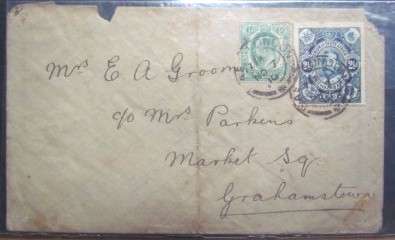 Mrs E A Groom
c/o Mrs Parkens
Market Sq.
Grahamstown